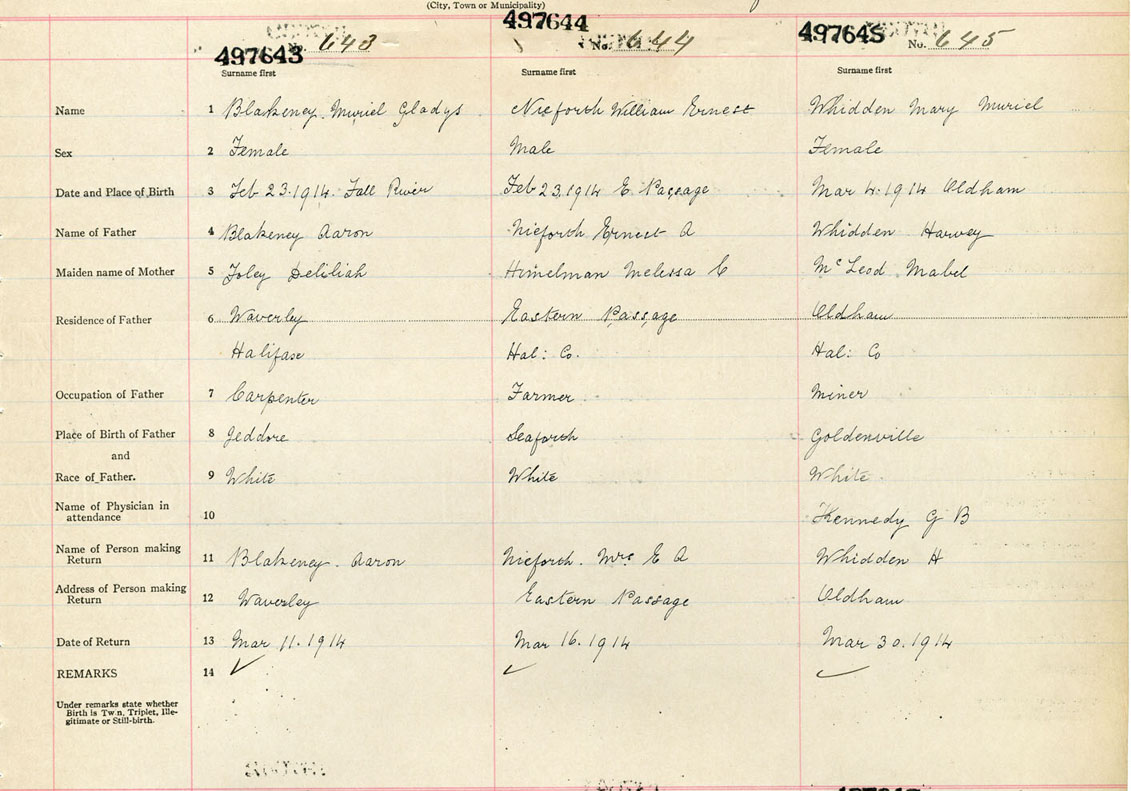 (City, Town or Municipality)
497643 No. 643 497644 No. 644 497645 No. 645
Surname first Surname first Surname first
Name 1 Blakeney Muriel Gladys Nieforth William Ernest Whidden Mary Muriel
Sex 2 Female Male Female
Date and Place of Birth 3 Feb 23.1914. Fall River Feb 23.1914 E Passage Mar 4.1914 Oldham
Name of Father 4 Blakeney Aaron Nieforth Ernest A Whidden Harvey
Maiden name of Mother 5 Foley Deliliah Himelman Melessa C McLeod Mabel
Residence of Father 6 Waverley Eastern Passage Oldham
Halifax Hal: Co. Hal: Co
Occupation of Father 7 Carpenter Farmer Miner
Place of Birth of Father 8 Jeddore Seaforth Goldenville
and
Race of Father. 9 White White White
Name of Physician in
attendance 10 Kennedy G B
Name of Person making
Return 11 Blakeney. Aaron Nieforth. Mrs E A Whidden H
Address of Person making
Return 12 Waverley Eastern Passage Oldham
Date of Return 13 Mar 11.1914 Mar 16.1914 Mar 30.1914
REMARKS 14 ✓ ✓ ✓
Under remarks state whether
Birth is Twin, Triplet, Ille-
gitimate or Still-birth.